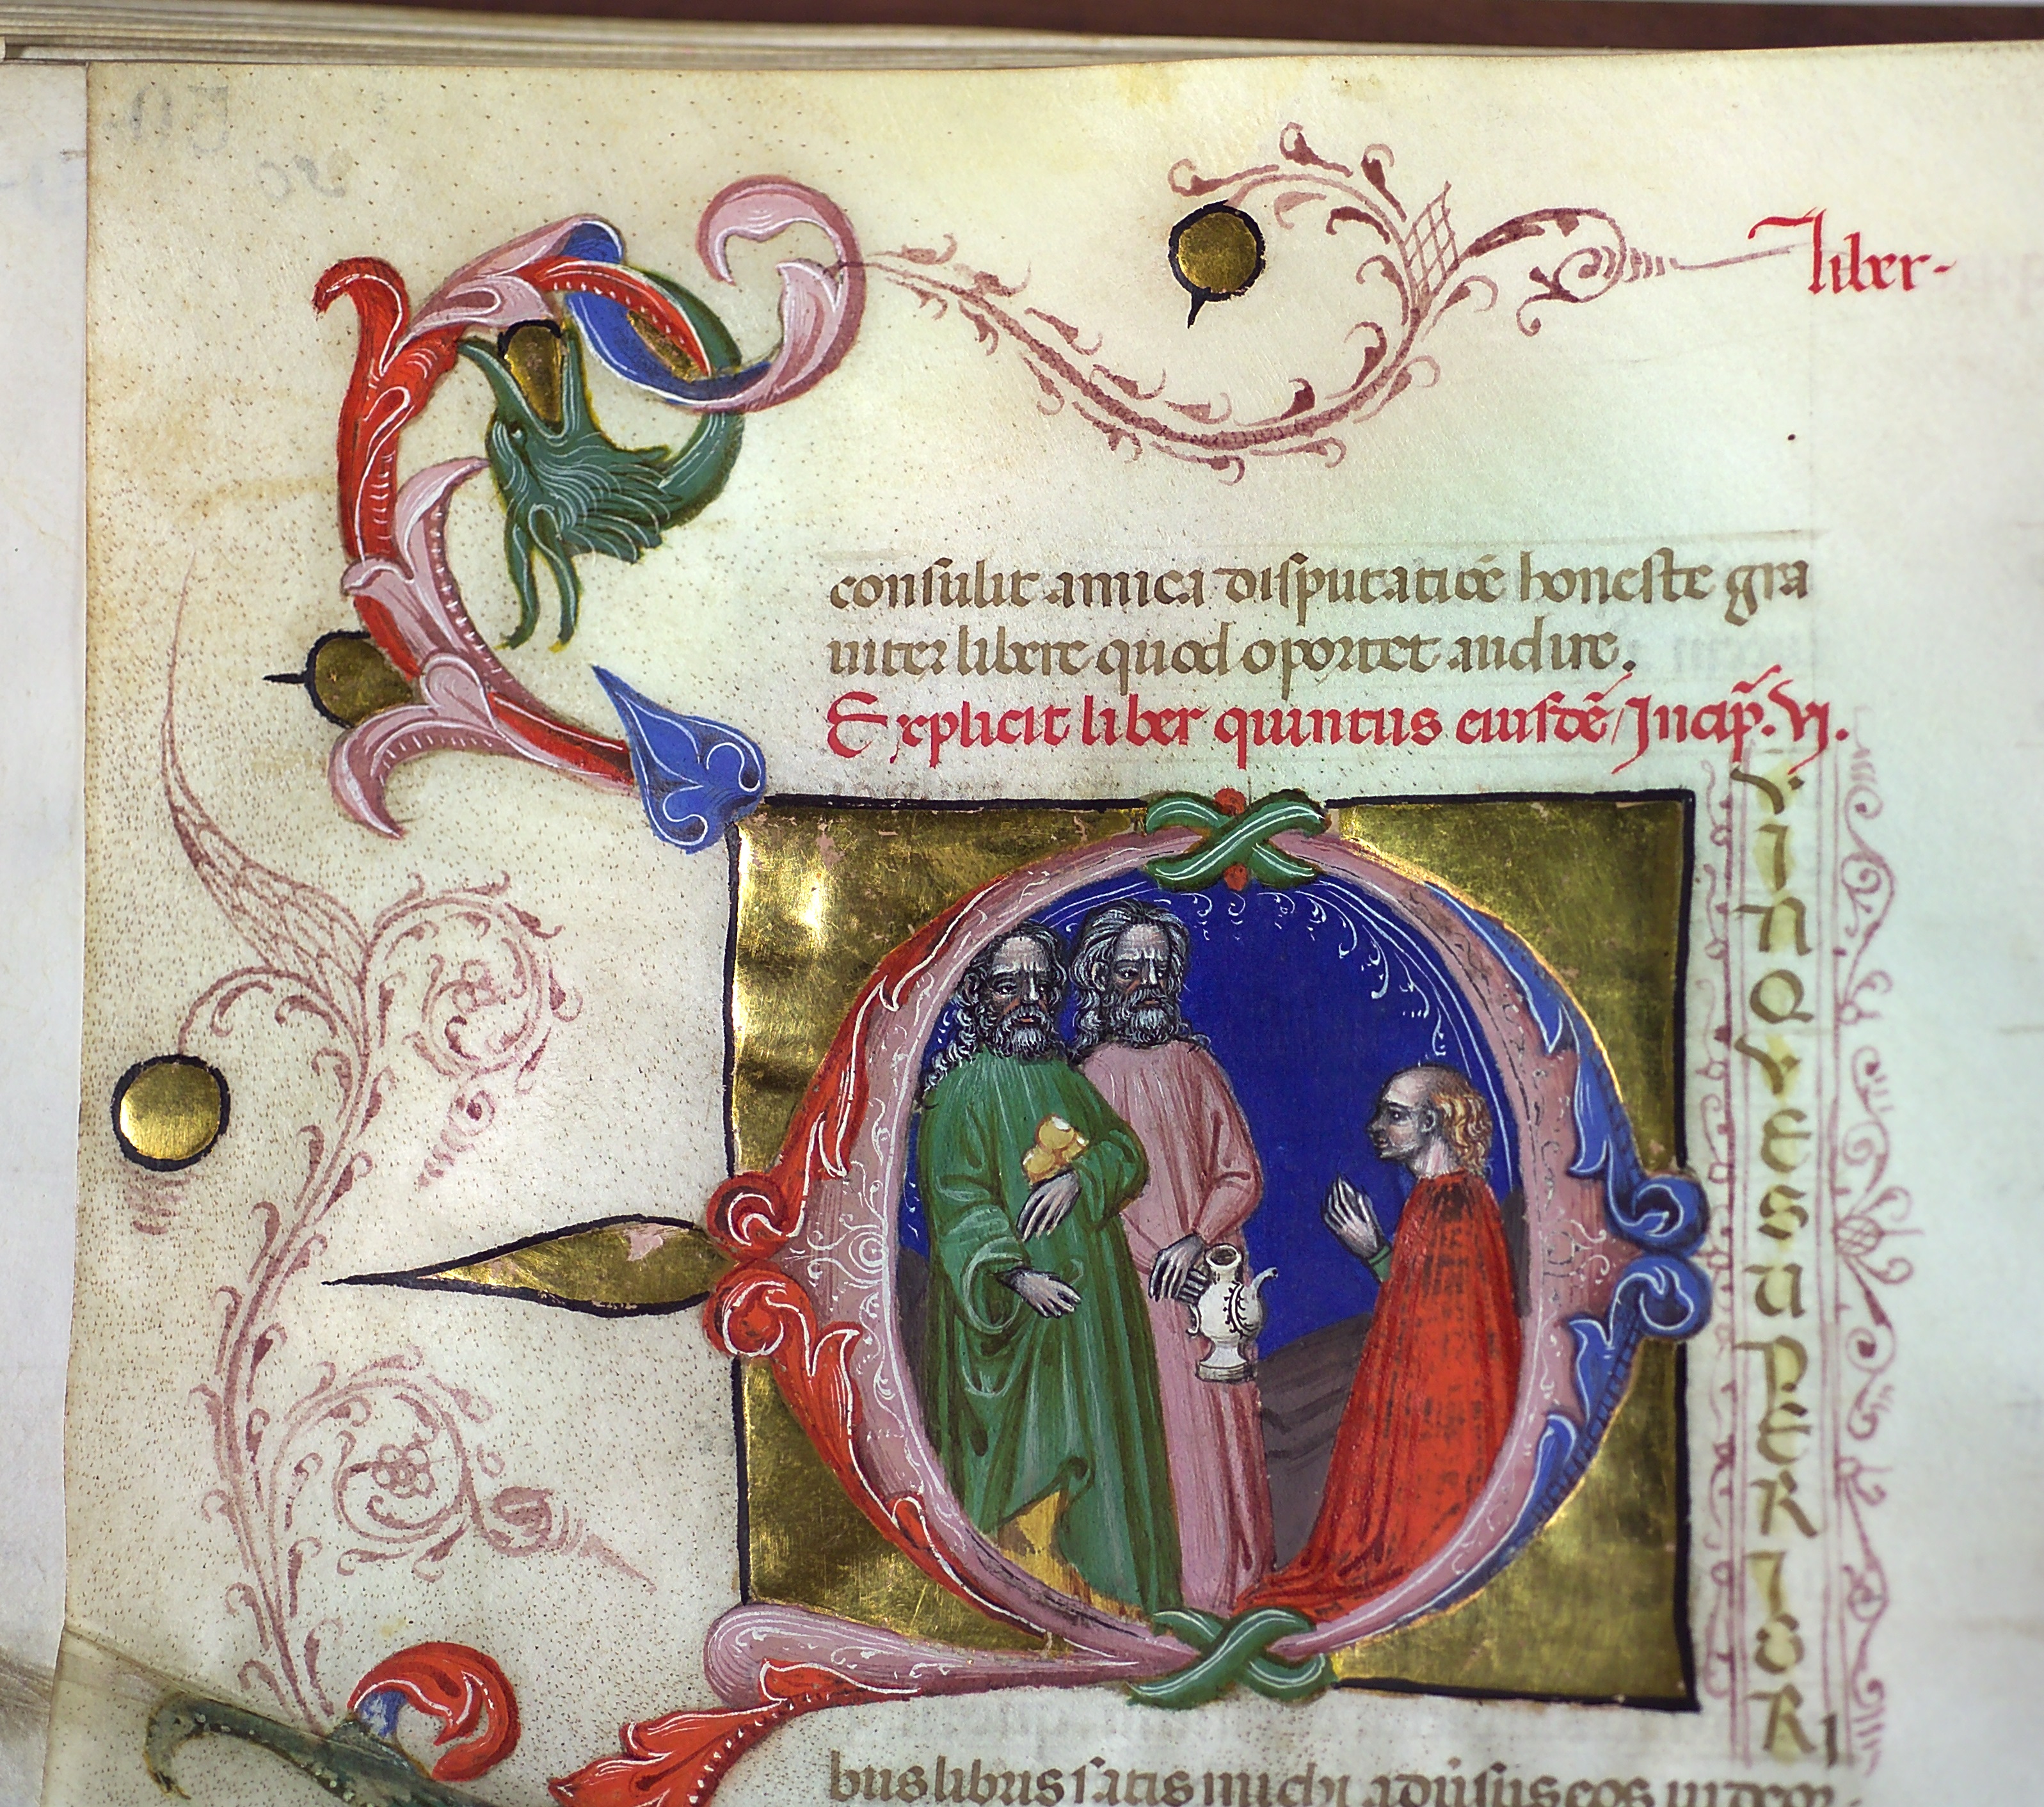 liber-
consulit amica disputatiōē honeste gra
uiter libere quod oportet audire.
Explicit liber quintus eiusdē / Incip̃. vj.
Q
VINQVESUPERIORI
bus libris satis michi adũsus eos